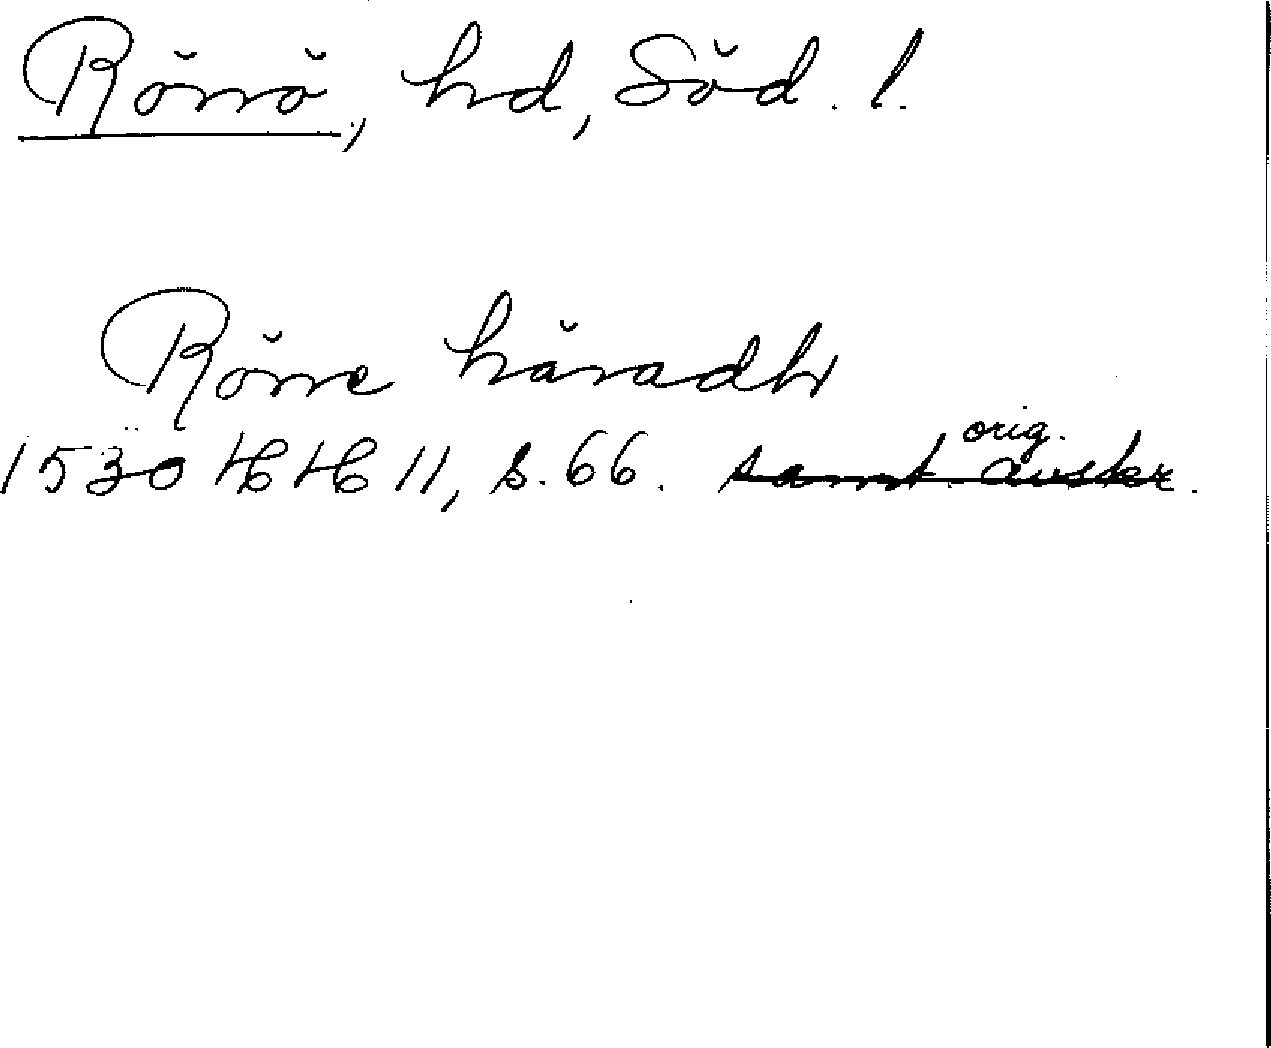 Rönö, hd, Söd. l.
Röne häradh
1530 HH 11, s. 66. samt. avskr. orig.